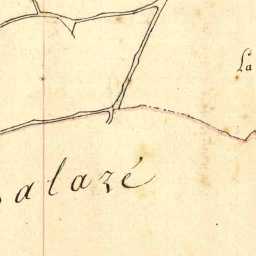 La
alazé